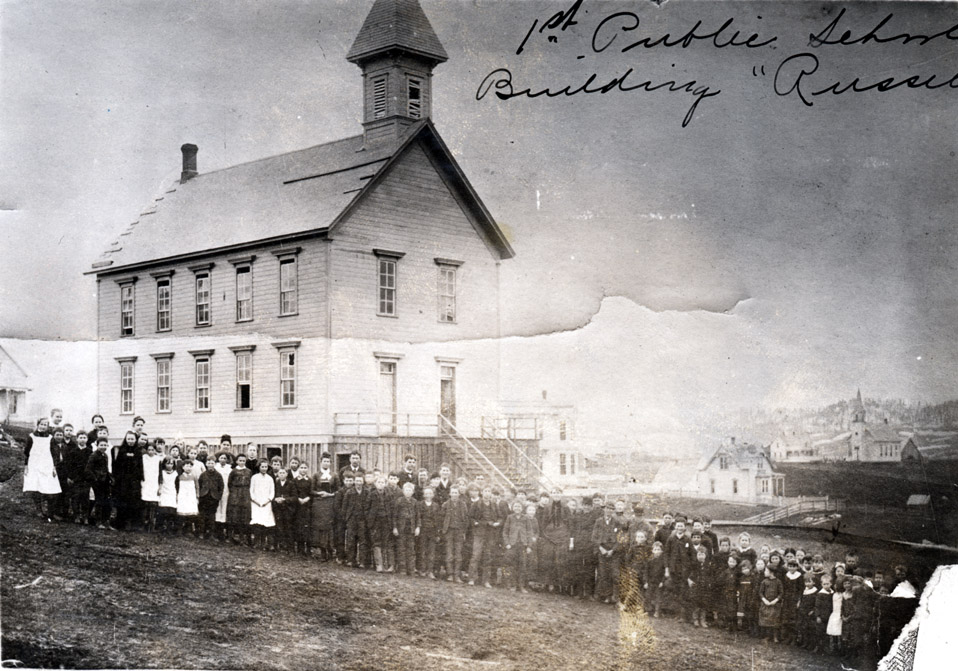 1st Public School
Building "Russel